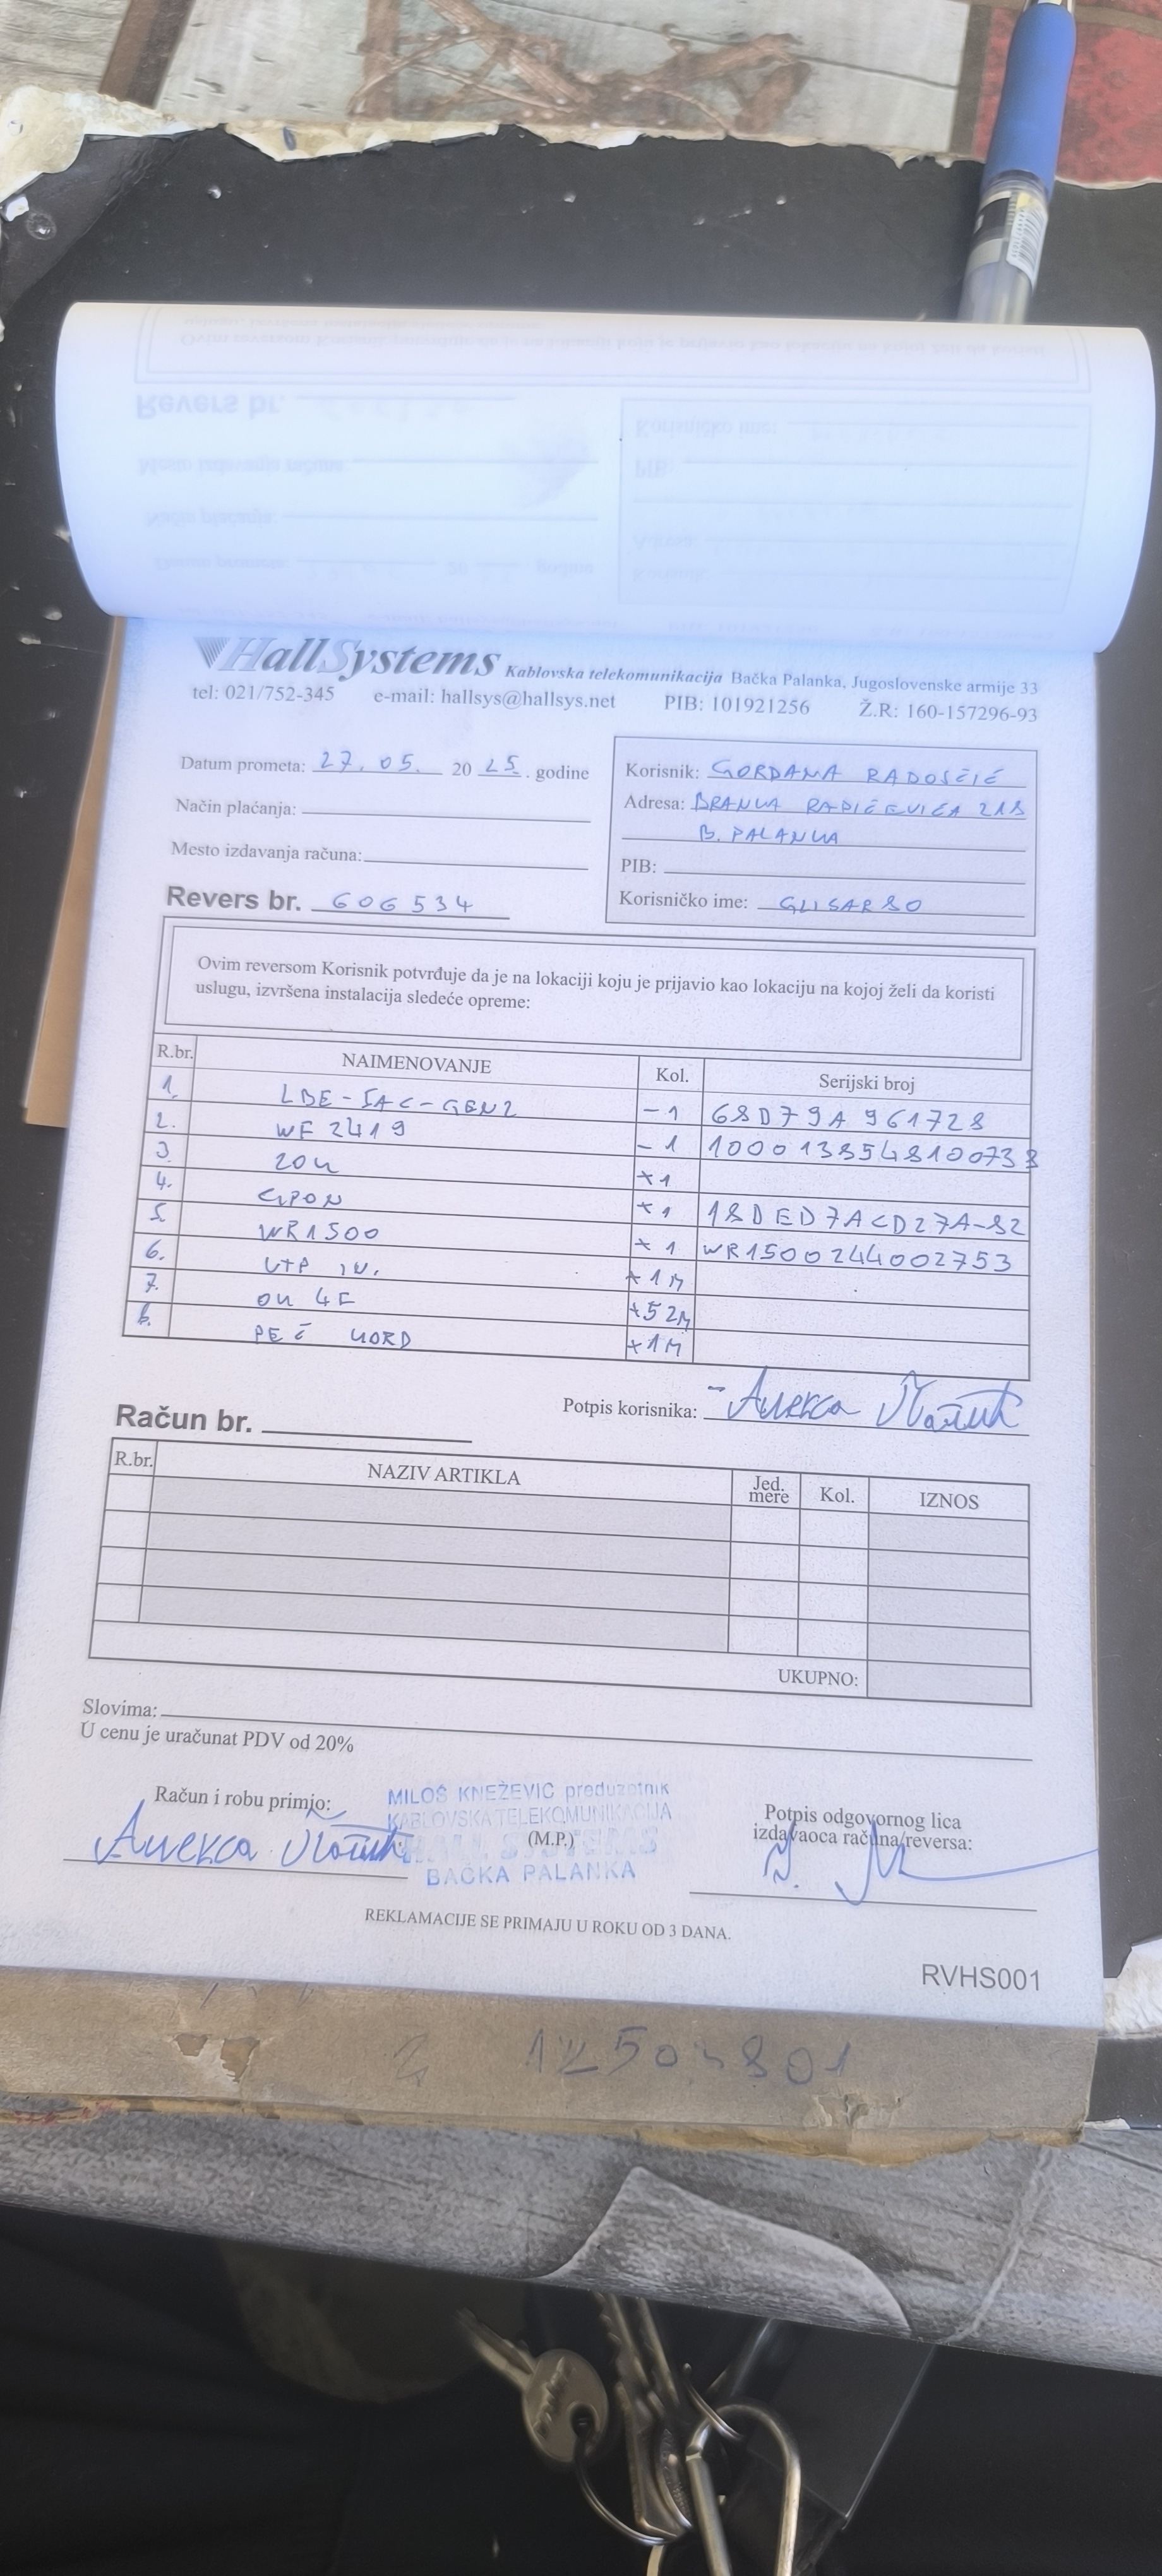 HallSystems Kablovska telekomunikacija Bačka Palanka, Jugoslovenske armije 33
tel: 021/752-345 e-mail: hallsys@hallsys.net PIB: 101921256 Ž.R: 160-157296-93
Datum prometa: 27. 05. 20 25. godine
Način plaćanja:
Mesto izdavanja računa:
Revers br. 606534
Korisnik: GORDANA RADOŠČIĆ
Adresa: BRANKA RADIČEVIĆA 218
B. PALANKA
PIB:
Korisničko ime: GLISAR80
Ovim reversom Korisnik potvrđuje da je na lokaciji koju je prijavio kao lokaciju na kojoj želi da koristi
uslugu, izvršena instalacija sledeće opreme:
R.br. NAIMENOVANJE Kol. Serijski broj
1. LBE-5AC-GEN2 -1 68D79A961728
2. WF2419 -1
3. ZOK +1
4. GPON +1 18DED7ACD27A-82
5. WR1500 +1 WR1500244002753
6. UTP +1M
7. OK 4F +52M
8. PEČ KORD +1M
Potpis korisnika: Алекса
Račun br.
R.br. NAZIV ARTIKLA Jed. mere Kol. IZNOS
UKUPNO:
Slovima:
U cenu je uračunat PDV od 20%
Račun i robu primio:
Алекса
MILOŠ KNEŽEVIĆ preduzetnik
KABLOVSKA TELEKOMUNIKACIJA
(M.P.)
HALL SYSTEMS
BAČKA PALANKA
Potpis odgovornog lica
izdavaoca računa/reversa:
REKLAMACIJE SE PRIMAJU U ROKU OD 3 DANA.
RVHS001